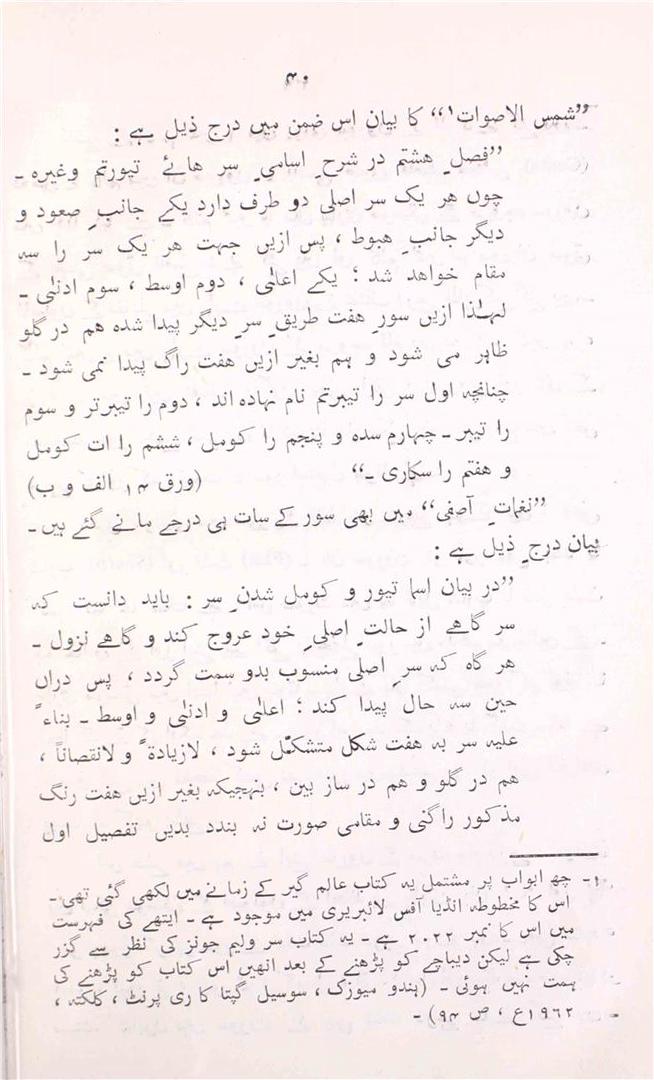 ۴۰
”شمس الاصوات۱“ کا بیان اس ضمن میں درج ذیل ہے :
”فصلِ ہشتم در شرحِ اسامیِ سر ہائے تیورتم وغیرہ ۔
چوں ہر یک سر اصلی دو طرف دارد یکے جانبِ صعود و
دیگر جانبِ ہبوط ، پس ازیں جہت ہر یک سر را سہ
مقام خواہد شد ؛ یکے اعلیٰ ، دوم اوسط ، سوم ادنیٰ ۔
لہٰذا ازیں سورِ ہفت طریقِ سر دیگر پیدا شدہ ہم در گلو
ظاہر می شود و ہم بغیر ازیں ہفت راگ پیدا نمی شود ۔
چنانچہ اول سر را تیبرتم نام نہادہ اند ، دوم را تیبرتر و سوم
را تیبر ۔ چہارم سدہ و پنجم را کومل ، ششم را ات کومل
و ہفتم را سکاری ۔“ (ورق ۱۴ الف و ب)
”نغماتِ آصفی“ میں بھی سور کے سات ہی درجے مانے گئے ہیں ۔
بیان درجِ ذیل ہے :
”در بیان اسما تیور و کومل شدنِ سر : باید دانست کہ
سر گاہے از حالتِ اصلیِ خود عروج کند و گاہے نزول ۔
ہر گاہ کہ سرِ اصلی منسوب بدو سمت گردد ، پس دراں
حین سہ حال پیدا کند ؛ اعلیٰ و ادنیٰ و اوسط ۔ بناءً
علیہ سر بہ ہفت شکل متشکّل شود ، لازیادۃً ولانقصاناً ،
ہم در گلو و ہم در ساز بین ، بنہجیکہ بغیر ازیں ہفت رنگ
مذکور راگنی و مقامی صورت نہ بندد بدیں تفصیل اول
۱۔ چھ ابواب پر مشتمل یہ کتاب عالم گیر کے زمانے میں لکھی گئی تھی ۔
اس کا مخطوطہ انڈیا آفس لائبریری میں موجود ہے ۔ ایتھے کی فہرست
میں اس کا نمبر ۲۰۲۲ ہے ۔ یہ کتاب سر ولیم جونز کی نظر سے گزر
چکی ہے لیکن دیباچے کو پڑھنے کے بعد انھیں اس کتاب کو پڑھنے کی
ہمت نہیں ہوئی ۔ (ہندو میوزک ، سوسیل گپتا کا ری پرنٹ ، کلکتہ ،
۱۹۶۲ع ، ص ۹۴) ۔